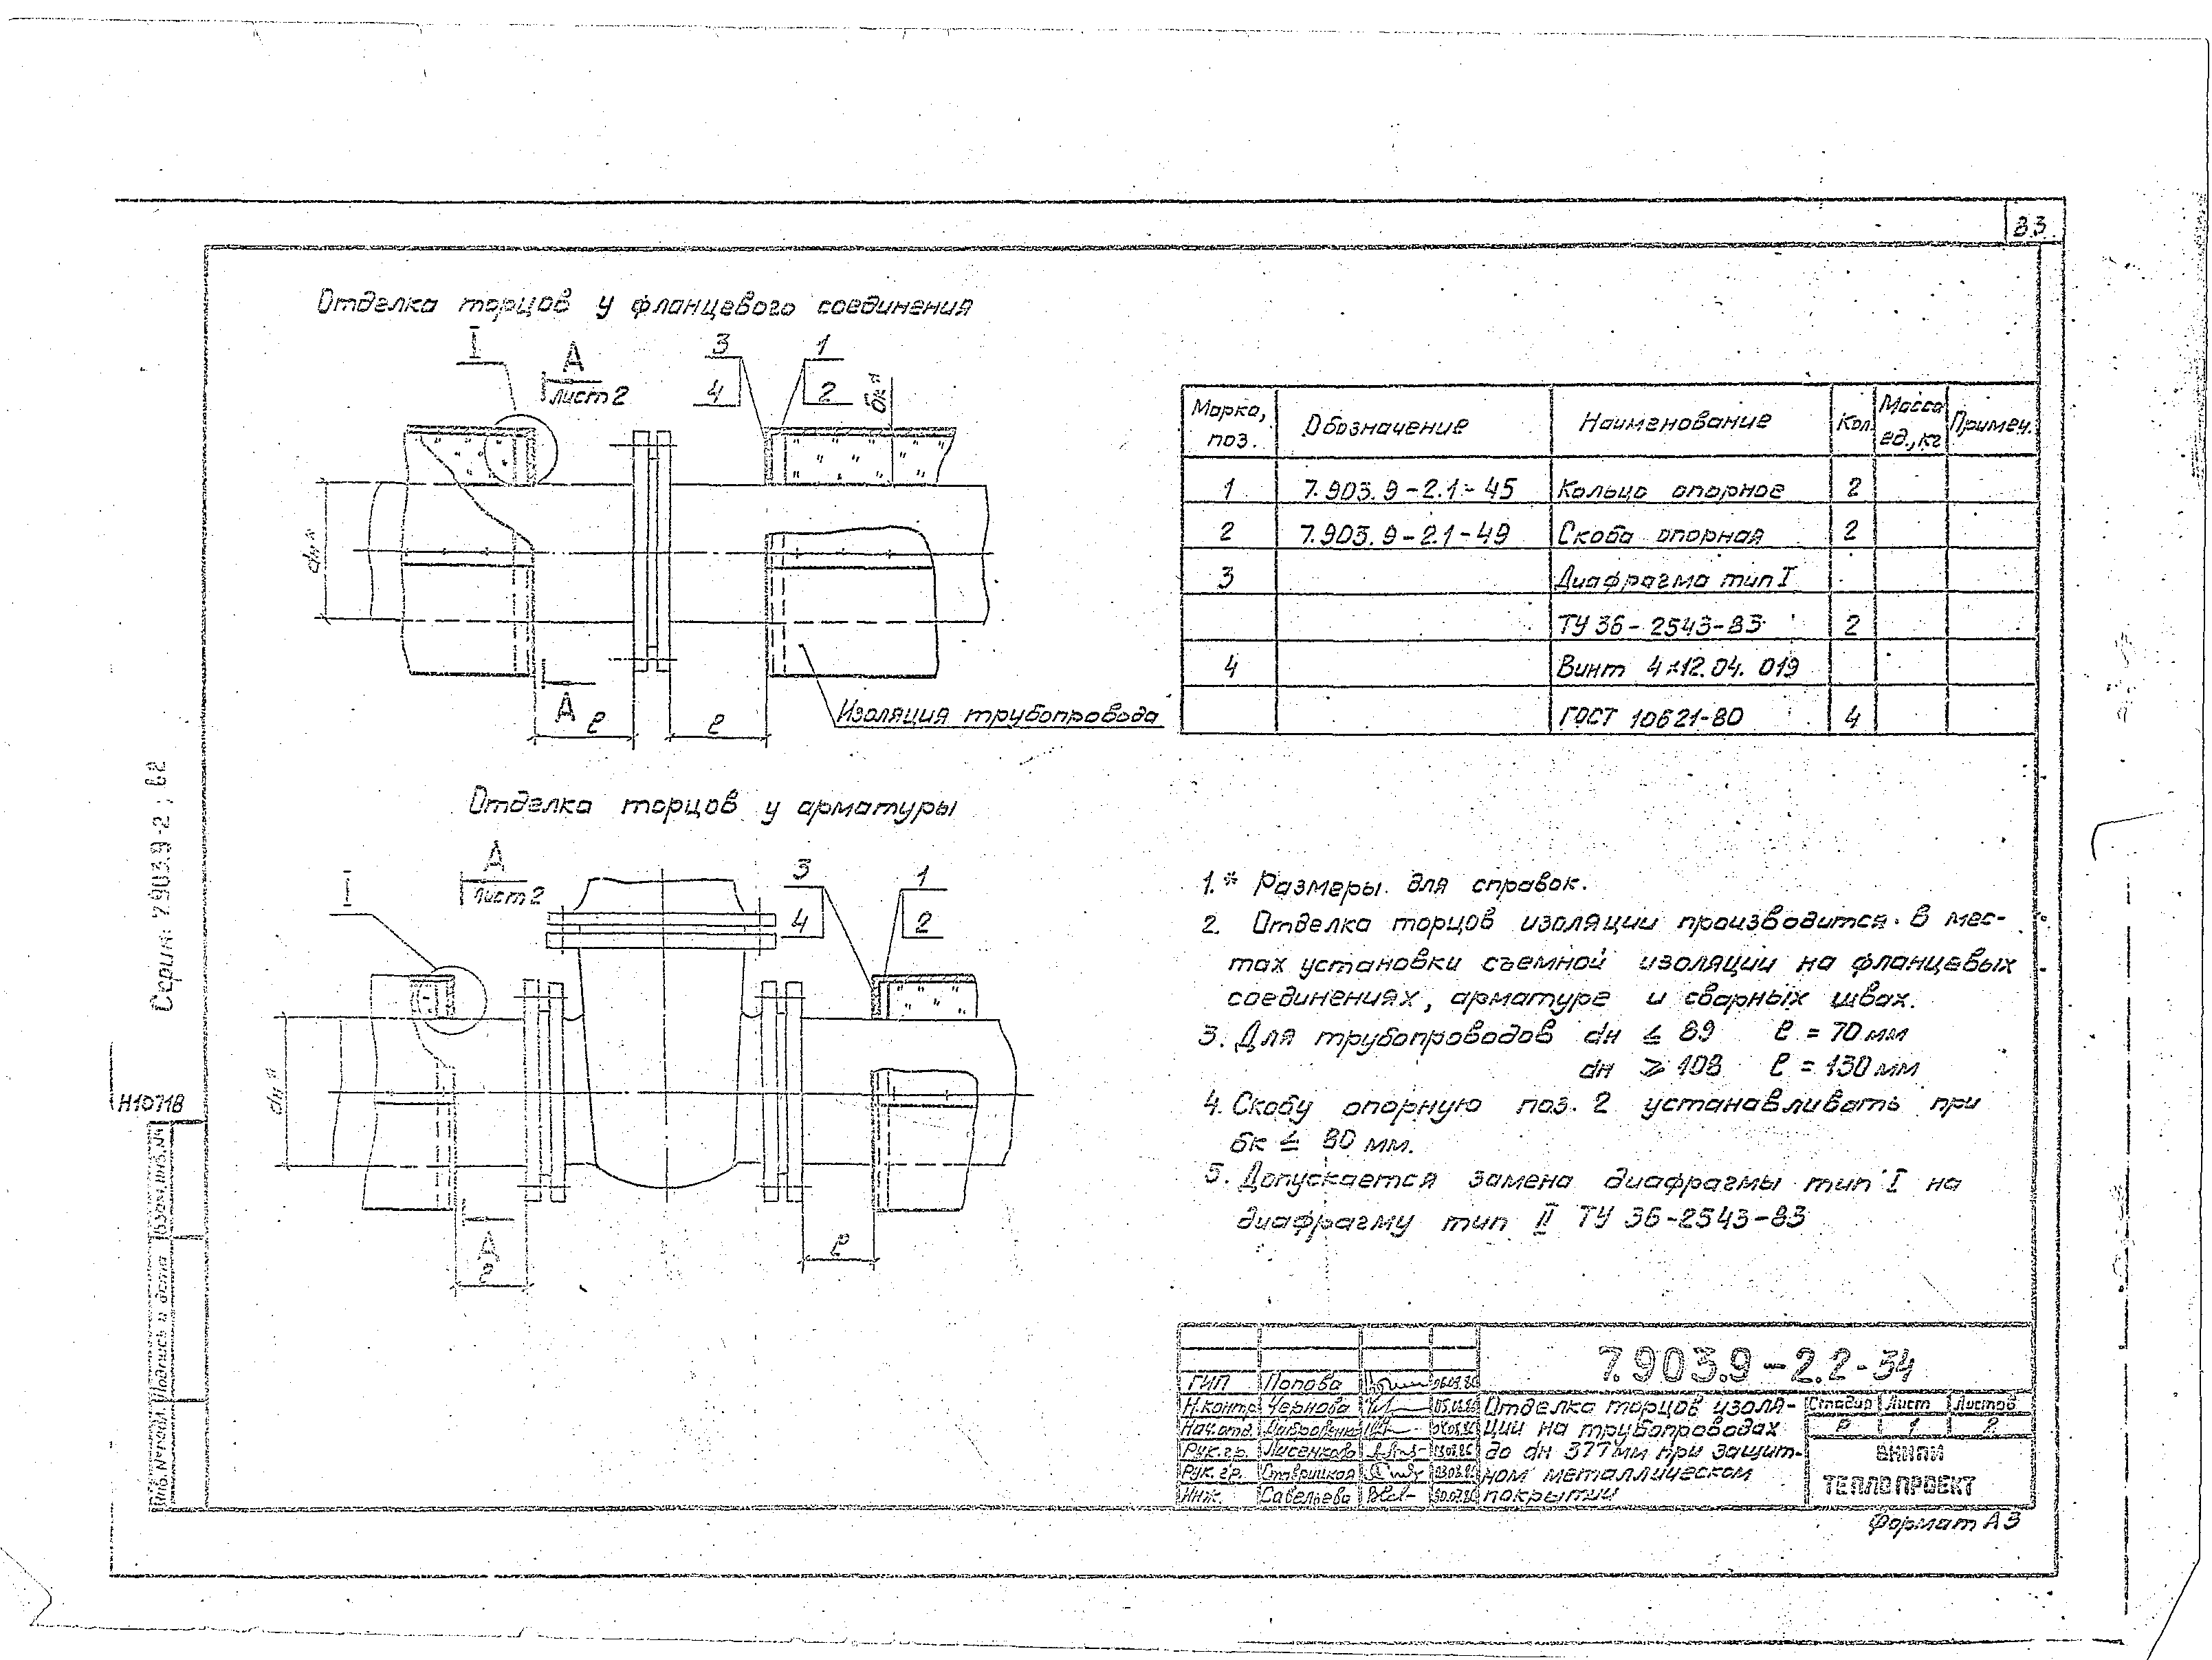 83
Отделка торцов у фланцевого соединения
I
А
Лист 2
3
4
1
2
бк*
dн*
А
l
l
Изоляция трубопровода
Отделка торцов у арматуры
I
А
Лист 2
3
4
1
2
dн*
А
l
l
Марка, поз. Обозначение Наименование Кол. Масса ед., кг Примеч.
1 7.903.9-2.1-45 Кольцо опорное 2
2 7.903.9-2.1-49 Скоба опорная 2
3 Диафрагма тип I
ТУ 36-2543-83 2
4 Винт 4×12.04.019
ГОСТ 10621-80 4
1.* Размеры для справок.
2. Отделка торцов изоляции производится в мес-
тах установки съемной изоляции на фланцевых
соединениях, арматуре и сварных швах.
3. Для трубопроводов dн ≤ 89 l = 70 мм
dн ≥ 108 l = 130 мм
4. Скобу опорную поз. 2 устанавливать при
бк ≤ 80 мм.
5. Допускается замена диафрагмы тип I на
диафрагму тип II ТУ 36-2543-83
Серия 7.903.9-2; в2
Н10718
Взам. инв. №
Подпись и дата
Инв. № подл.
7.903.9-2.2-34
ГИП Попова
Н.контр. Чернова
Нач. отд.
Рук. гр. Лисенкова
Рук. гр. Ставрицкая
Инж. Савельева
Отделка торцов изоля-
ции на трубопроводах
до dн 377мм при защит-
ном металлическом
покрытии
Стадия Лист Листов
Р 1 2
ВНИПИ
ТЕПЛОПРОЕКТ
Формат А3